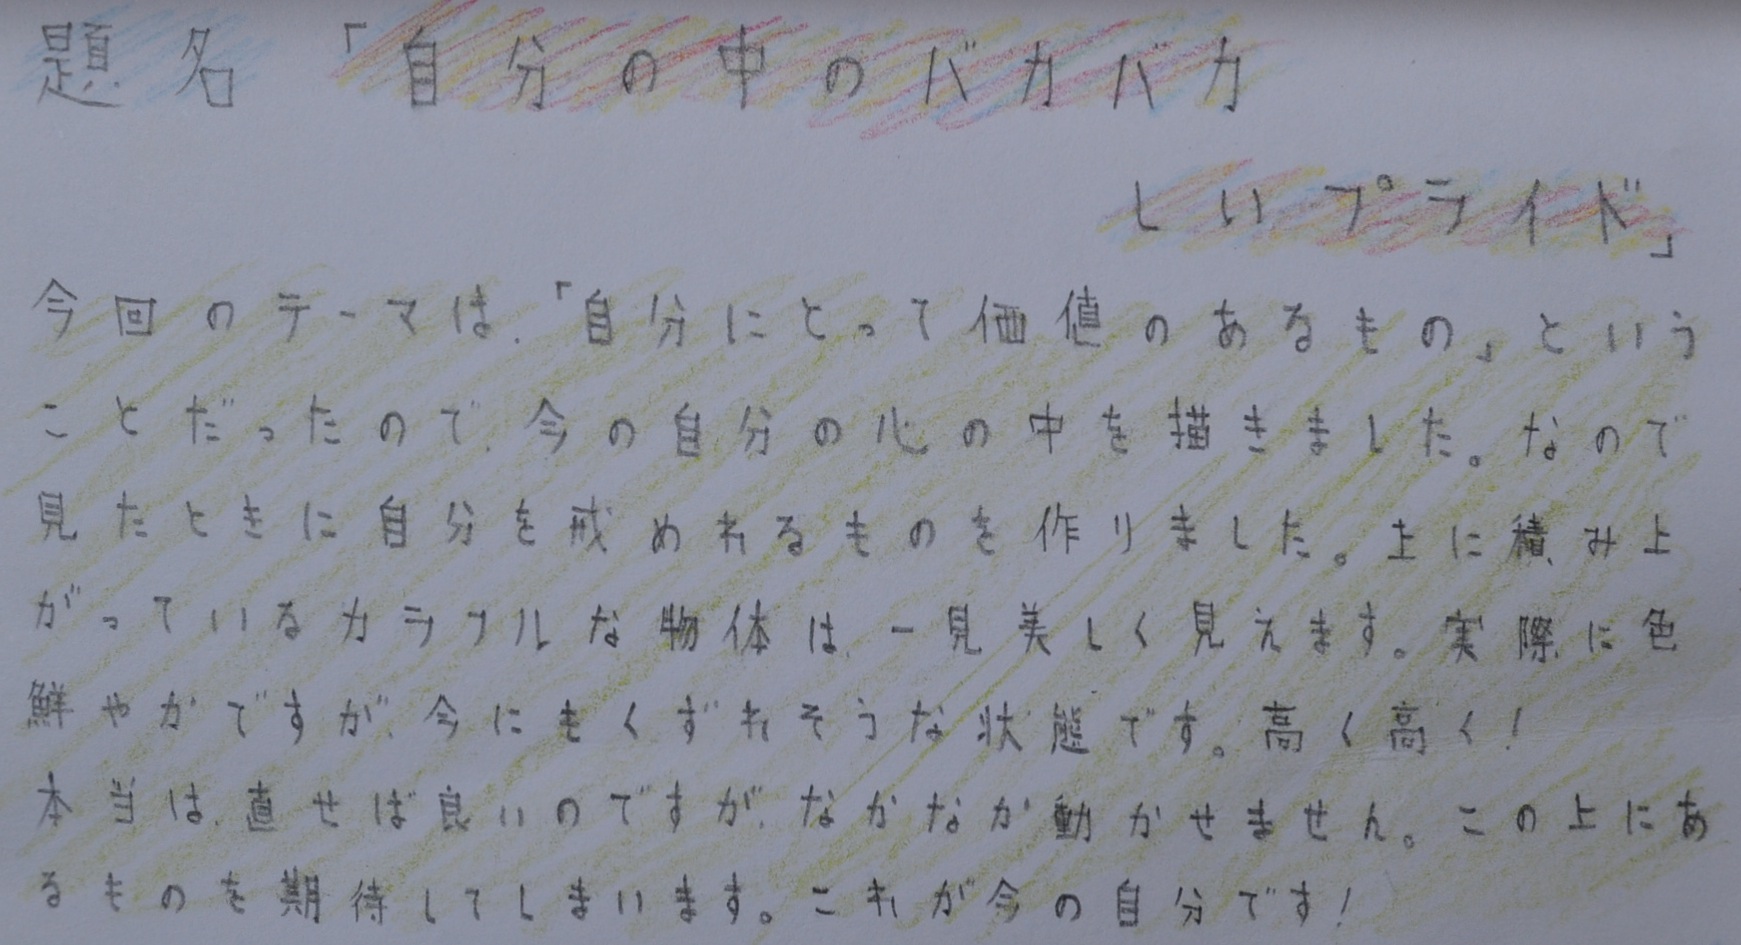 題名「自分の中のバカバカ
しいプライド」
今回のテーマは、「自分にとって価値のあるもの」という
ことだったので、今の自分の心の中を描きました。なので
見たときに自分を戒めれるものを作りました。上に積み上
がっているカラフルな物体は、一見美しく見えます。実際に色
鮮やかですが、今にもくずれそうな状態です。高く高く!
本当は、直せば良いのですが、なかなか動かせません。この上にあ
るものを期待してしまいます。これが今の自分です!